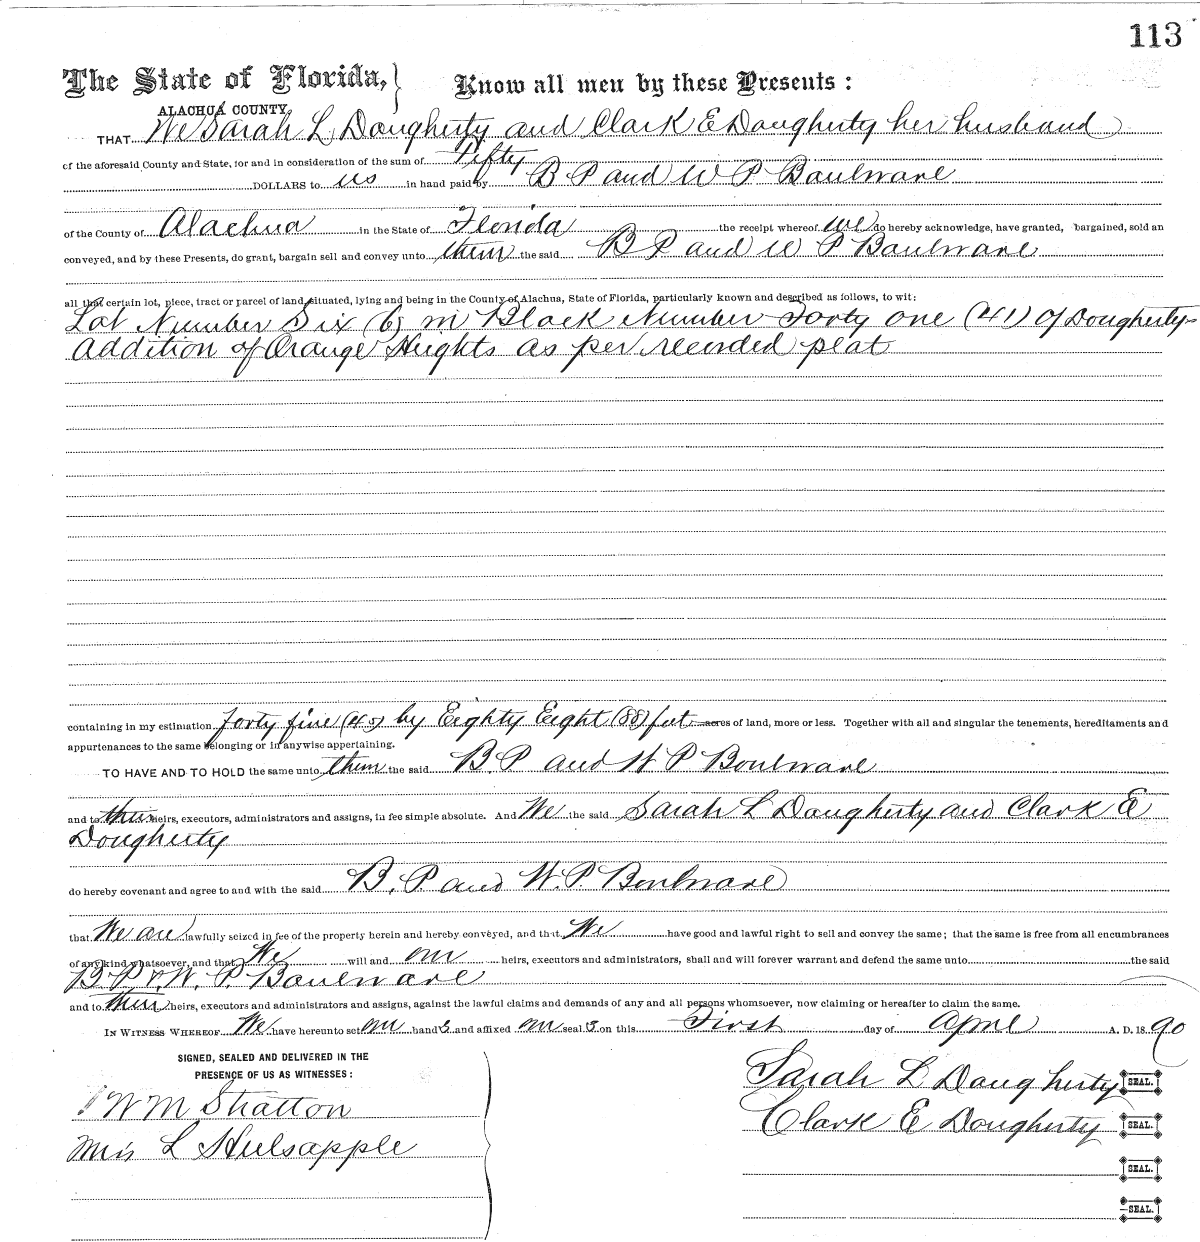 113
The State of Florida, Know all men by these Presents:
ALACHUA COUNTY,
THAT We Sarah L Dougherty and Clark E Dougherty her husband
of the aforesaid County and State, for and in consideration of the sum of Fifty
DOLLARS to us in hand paid by B P and W P Boulware
of the County of Alachua in the State of Florida the receipt whereof we do hereby acknowledge, have granted, bargained, sold an
conveyed, and by these Presents, do grant, bargain sell and convey unto them the said B P and W P Boulware
all that certain lot, piece, tract or parcel of land, situated, lying and being in the County of Alachua, State of Florida, particularly known and described as follows, to wit:
Lot Number Six (6) in Block Number Forty one (41) of Doughertys
addition of Orange Heights as per recorded plat
containing in my estimation forty five (45) by Eighty Eight (88) feet acres of land, more or less. Together with all and singular the tenements, hereditaments and
appurtenances to the same belonging or in anywise appertaining.
TO HAVE AND TO HOLD the same unto them the said B.P and W P Boulware
and to their heirs, executors, administrators and assigns, in fee simple absolute. And We the said Sarah L Dougherty and Clark E
Dougherty
do hereby covenant and agree to and with the said B.P and W.P. Boulware
that We are lawfully seized in fee of the property herein and hereby conveyed, and that We have good and lawful right to sell and convey the same; that the same is free from all encumbrances
of any kind whatsoever, and that We will and our heirs, executors and administrators, shall and will forever warrant and defend the same unto the said
B P & W. P. Boulware
and to their heirs, executors and administrators and assigns, against the lawful claims and demands of any and all persons whomsoever, now claiming or hereafter to claim the same.
IN WITNESS WHEREOF We have hereunto set our hand s and affixed our seal s on this First day of April A. D. 18 90
SIGNED, SEALED AND DELIVERED IN THE
PRESENCE OF US AS WITNESSES:
W M Stratton
Mrs L Hulsapple
Sarah L Dougherty SEAL.
Clark E Dougherty SEAL.
SEAL.
SEAL.